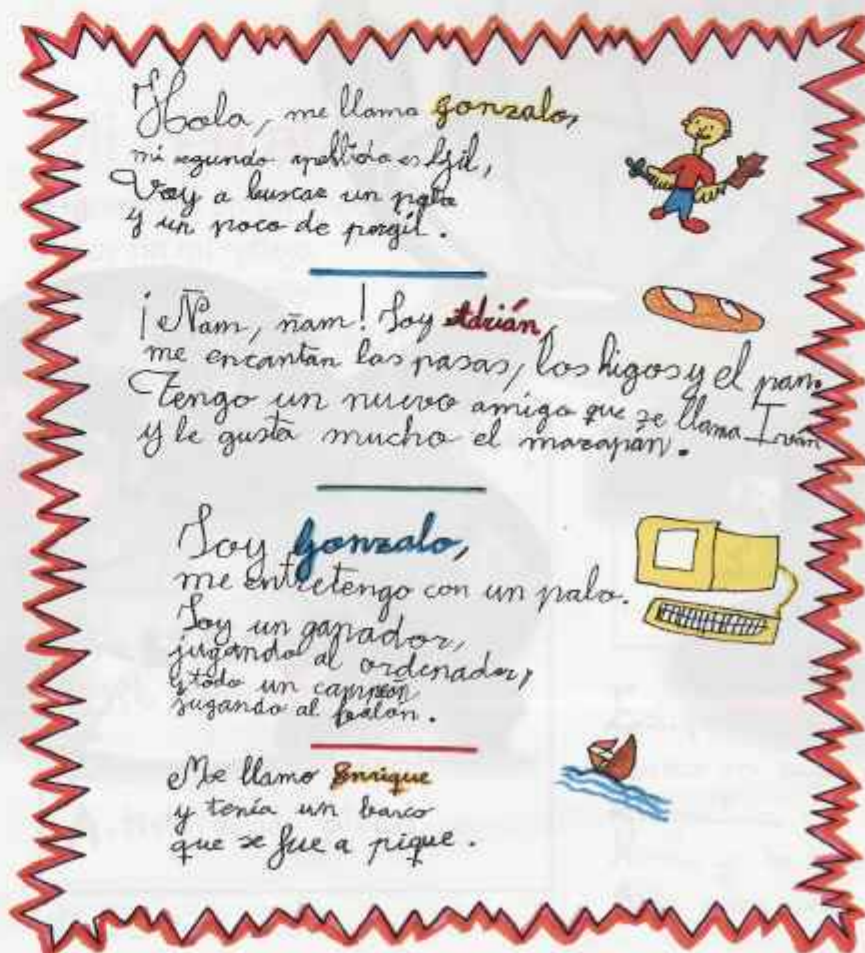 Hola, me llamo Gonzalo,
mi segundo apellido es Gil,
Voy a buscar un palo
y un poco de pergil.
¡Ñam, ñam! Soy Adrián,
me encantan las pasas, los higos y el pan.
Tengo un nuevo amigo que se llama Iván
y le gusta mucho el mazapán.
Soy Gonzalo,
me entretengo con un palo.
Soy un ganador,
jugando al ordenador,
y todo un campeón
jugando al balón.
Me llamo Enrique
y tenía un barco
que se fue a pique.